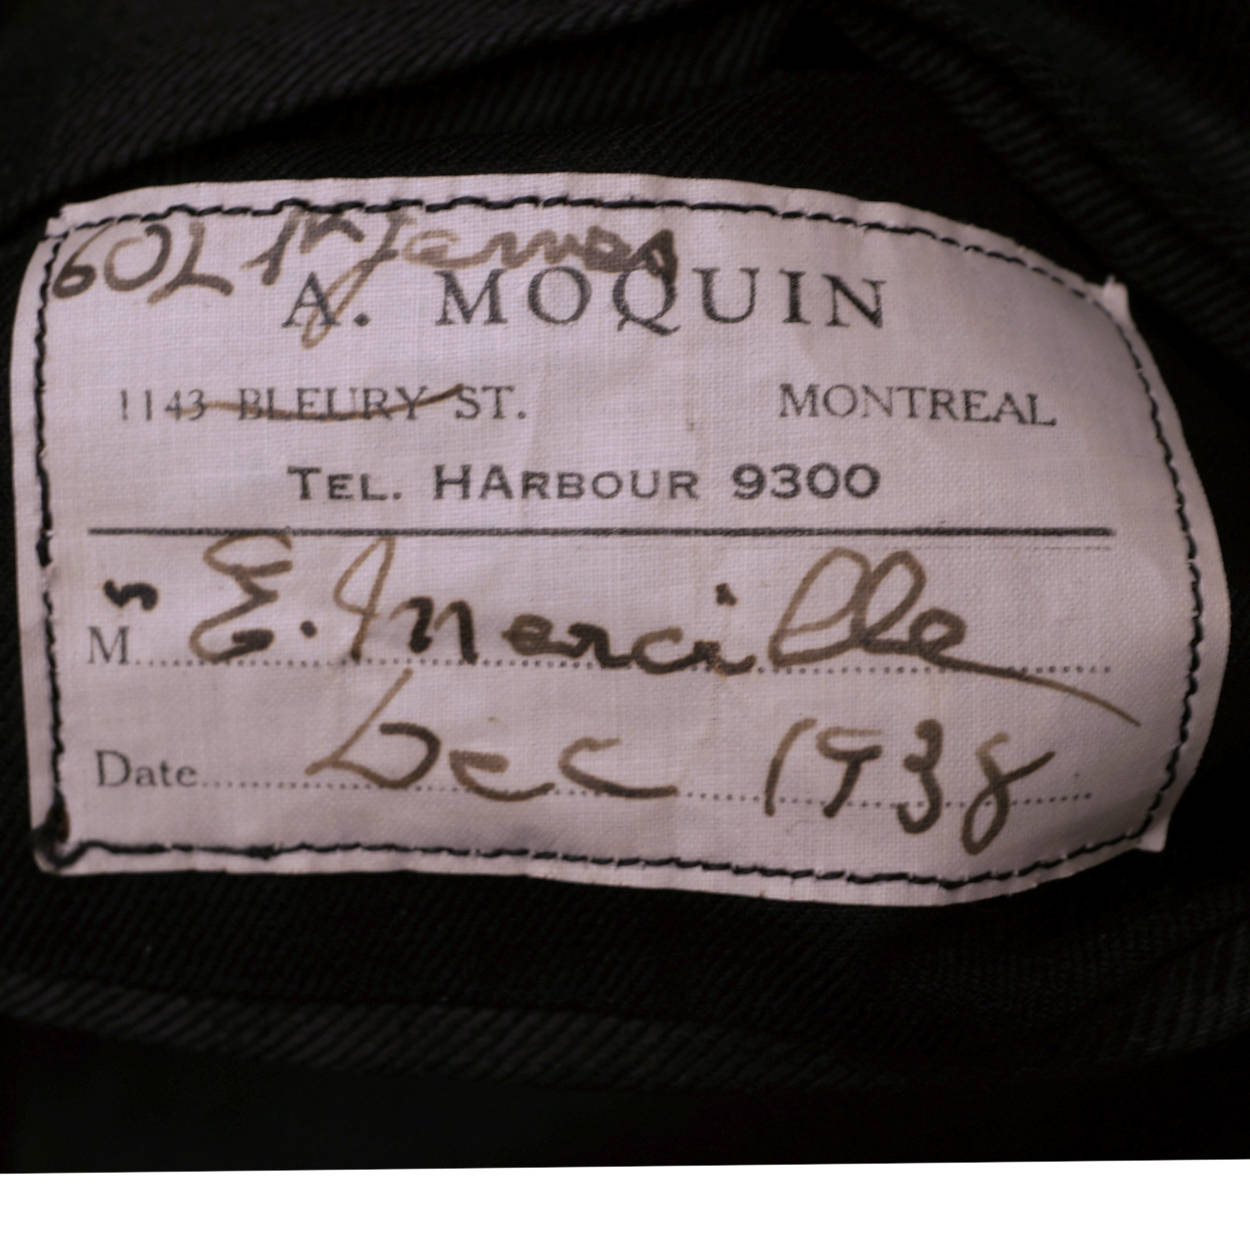 602 St James
A. MOQUIN
1143 BLEURY ST. MONTREAL
TEL. HARBOUR 9300
Ms E. Mercille
Date Dec 1938